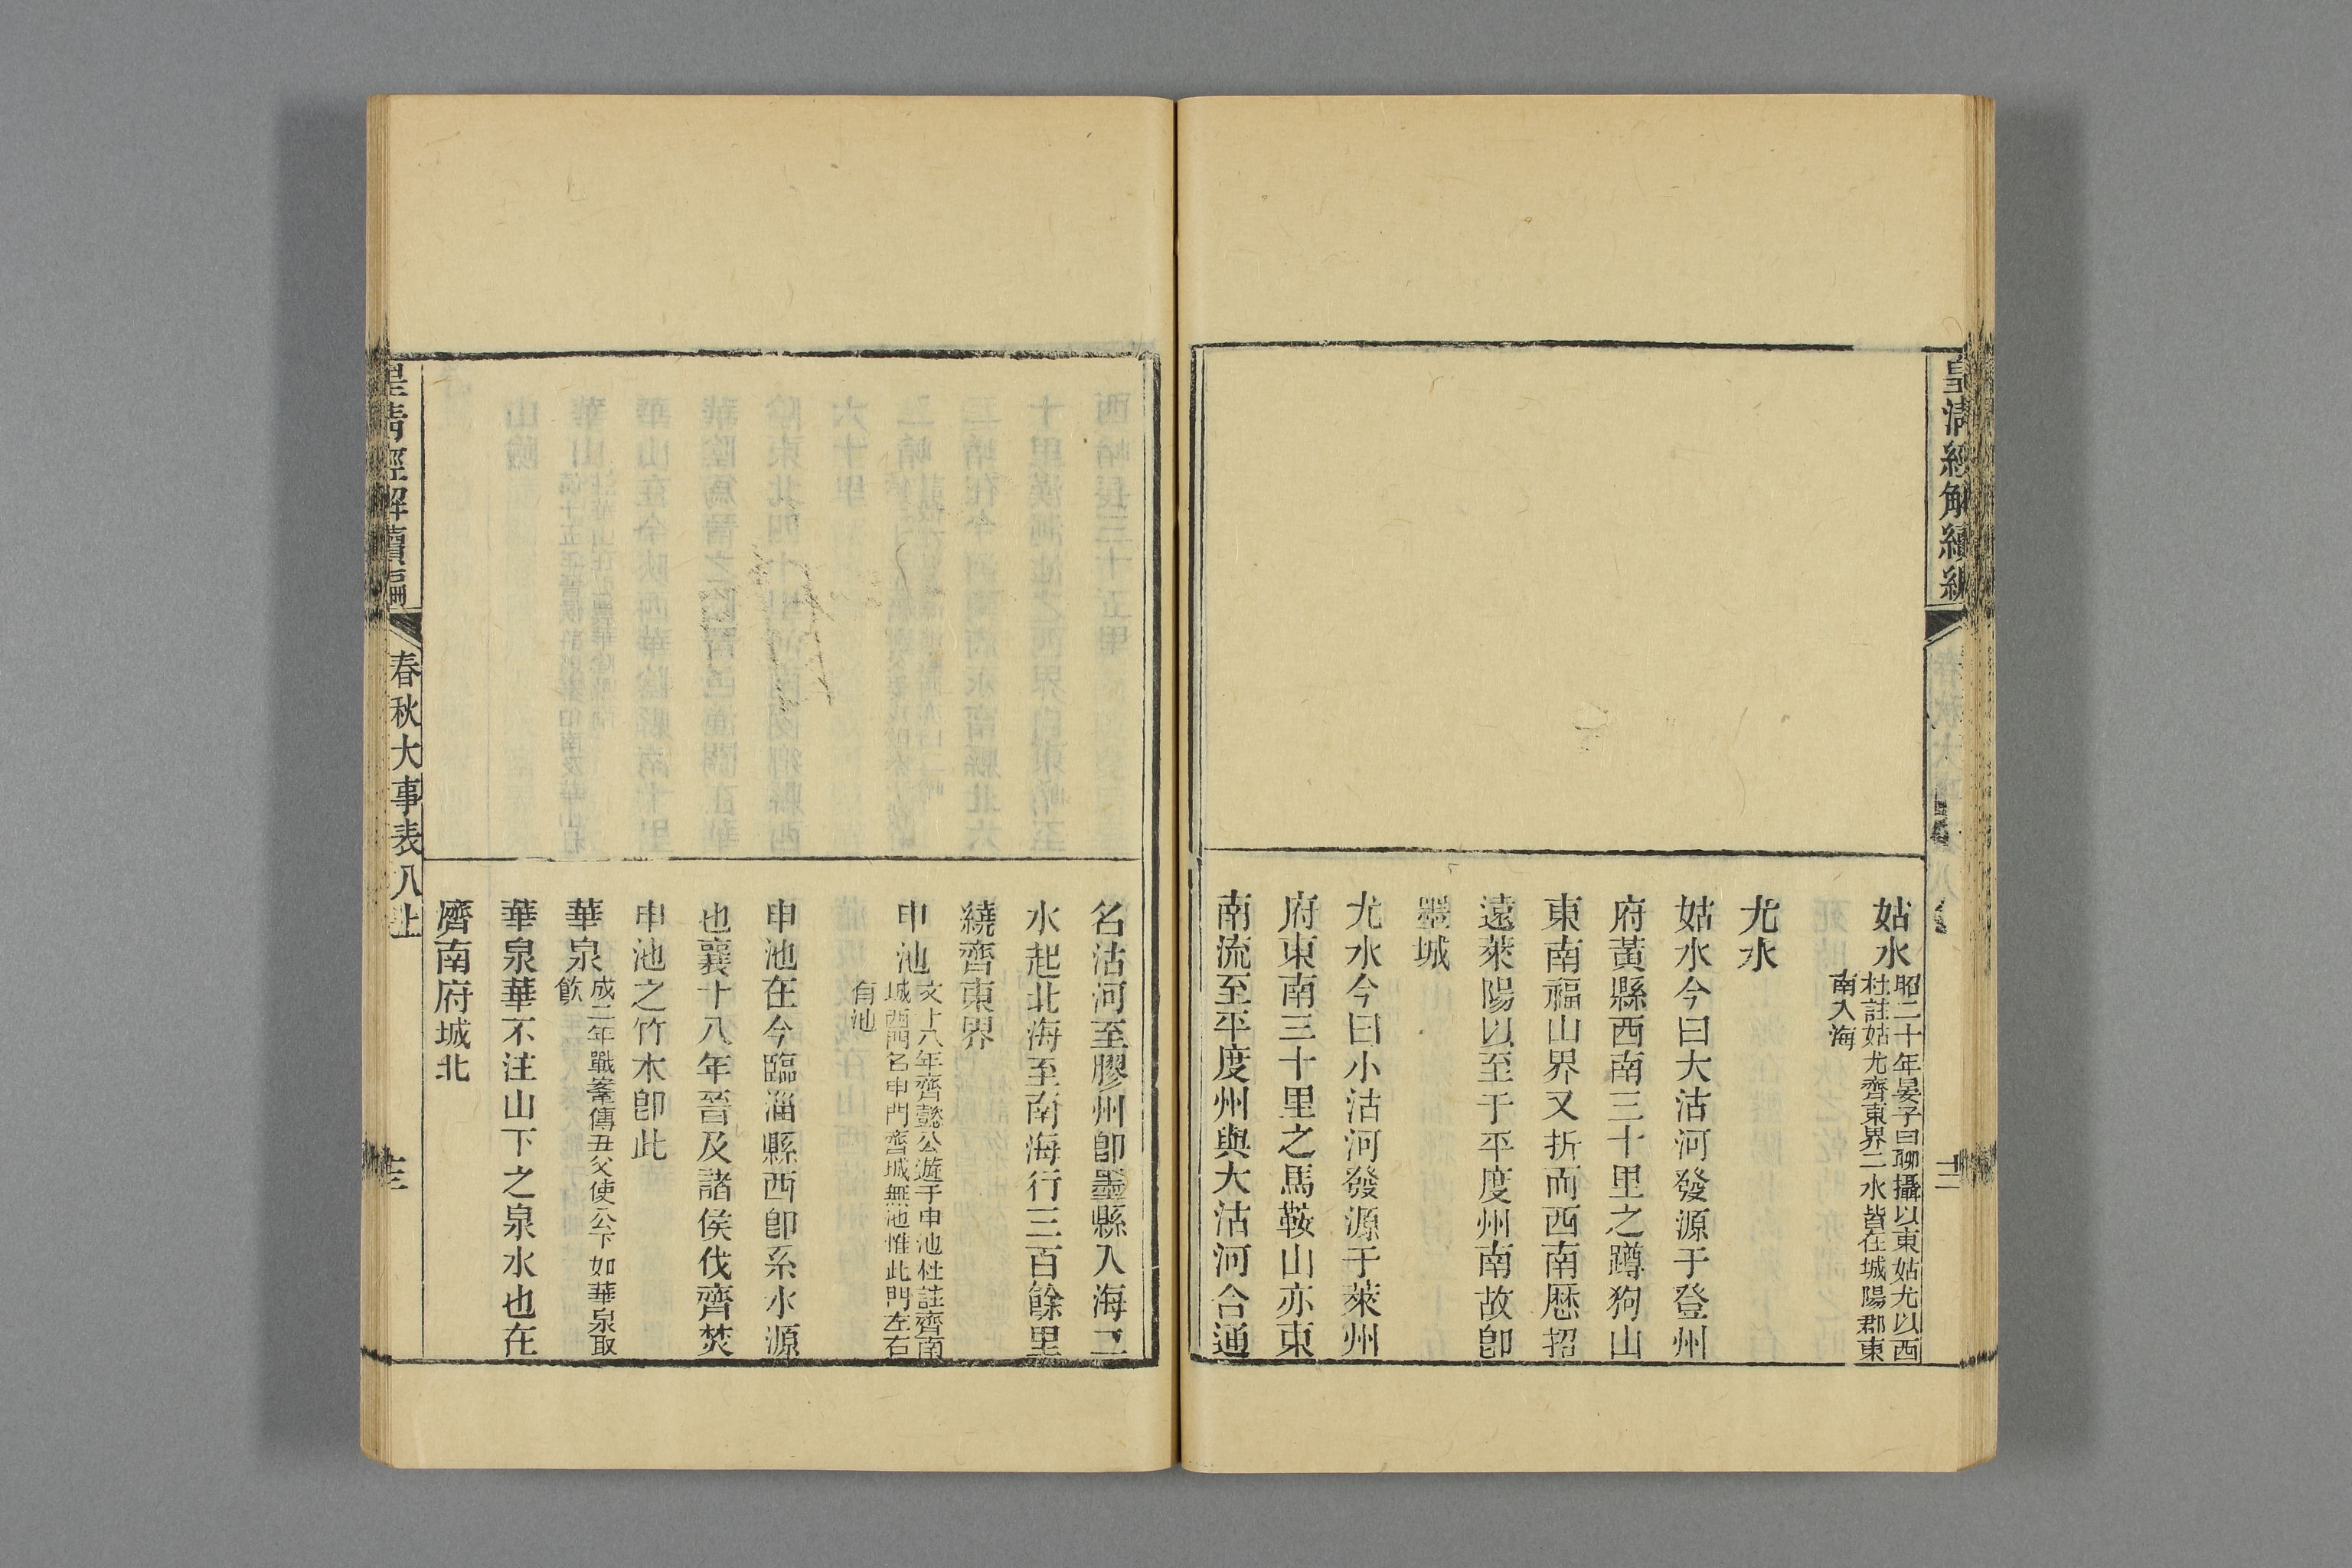 皇清經解續編
姑水
昭二十年晏子曰聊攝以東姑尤以西
杜註姑尤齊東界二水皆在城陽郡東
南入海
尤水
姑水今曰大沽河發源于登州
府黃縣西南三十里之蹲狗山
東南福山界又折而西南歷招
遠萊陽以至于平度州南故卽
墨城
尤水今曰小沽河發源于萊州
府東南三十里之馬鞍山亦東
南流至平度州與大沽河合通
名沽河至膠州卽墨縣入海二
水起北海至南海行三百餘里
繞齊東界
申池
文十八年齊懿公遊于申池杜註齊南
城西門名申門齊城無池惟此門左右
有池
申池在今臨淄縣西卽系水源
也襄十八年晉及諸侯伐齊焚
申池之竹木卽此
華泉
成二年戰鞌傳丑父使公下如華泉取
飮
華泉華不注山下之泉水也在
濟南府城北
皇清經解續編
春秋大事表八上